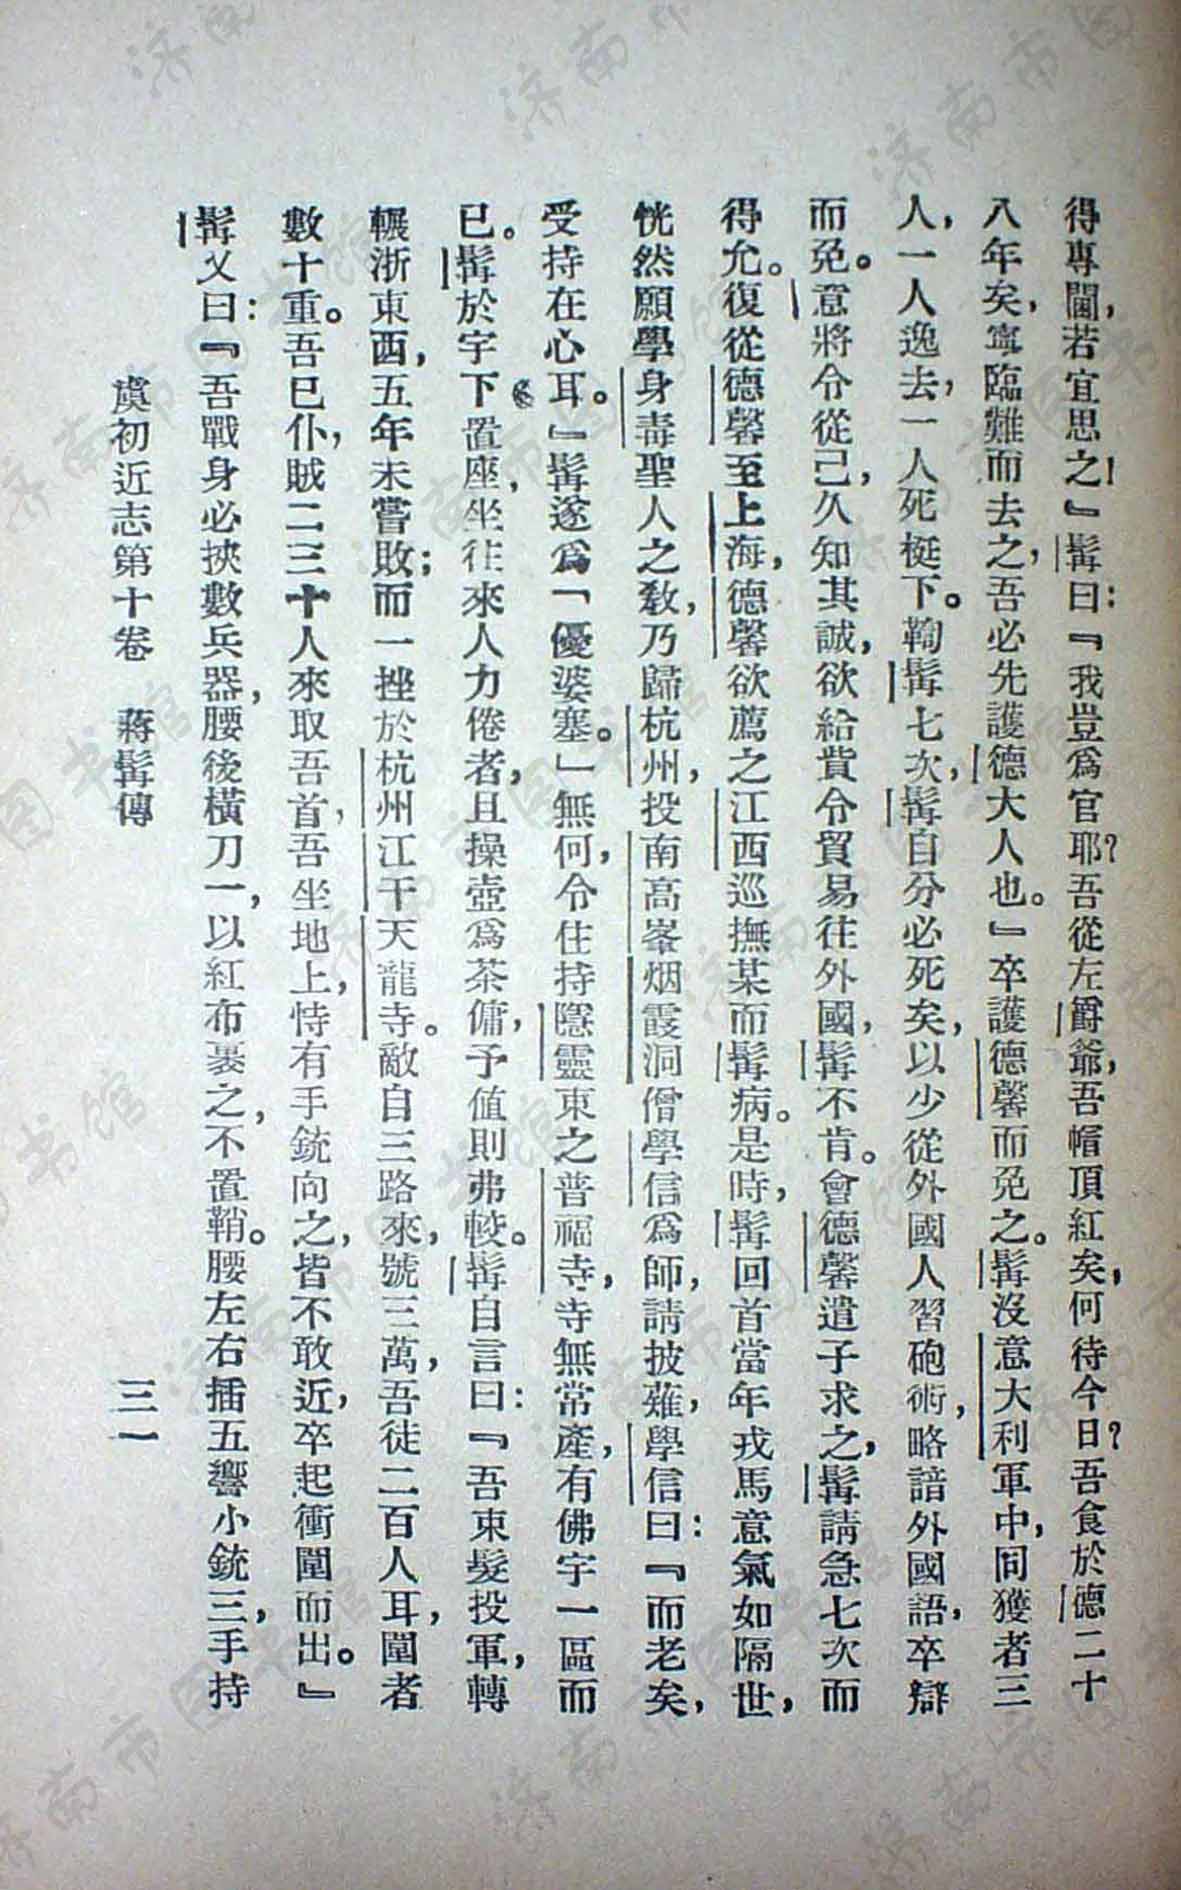 得專閫，若宜思之！』髯曰：『我豈爲官耶？吾從左爵爺，吾帽頂紅矣，何待今日？吾食於德二十
八年矣，寧臨難而去之，吾必先護德大人也。』卒護德馨而免之。髯沒意大利軍中，同獲者三
人，一人逸去，一人死梃下。鞫髯七次，髯自分必死矣，以少從外國人習砲術，略諳外國語，卒辯
而免。意將令從己，久知其誠，欲給貲令貿易往外國，髯不肯。會德馨遣子求之，髯請急七次而
得允。復從德馨至上海，德馨欲薦之江西巡撫某而髯病。是時，髯回首當年戎馬意氣如隔世，
恍然願學身毒聖人之教，乃歸杭州，投南高峯烟霞洞僧學信爲師，請披薙，學信曰：『而老矣，
受持在心耳。』髯遂爲「優婆塞。」無何，令住持隱靈東之普福寺，寺無常產，有佛宇一區而
已。髯於宇下置座，坐往來人力倦者，且操壺爲茶傭，予值則弗較。髯自言曰：『吾束髮投軍，轉
輾浙東西，五年未嘗敗；而一挫於杭州江干天龍寺。敵自三路來，號三萬，吾徒二百人耳，圍者
數十重。吾已仆，賊二三十人來取吾首，吾坐地上，恃有手銃向之，皆不敢近，卒起衝圍而出。』
髯又曰：『吾戰身必挾數兵器，腰後橫刀一，以紅布裹之，不置鞘。腰左右插五響小銃三，手持
虞初近志第十卷 蔣髯傳 三一